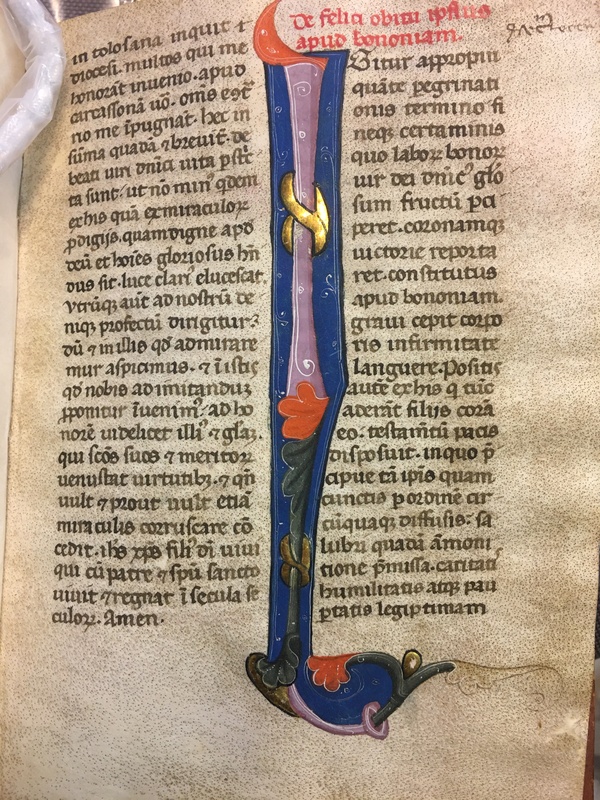 in tolosana inquit ⁊
diocesi. multos qui me
honorāt invenio. apud
carcassonā uō. om̄s est̄
rio me īpugnāt. hec in
sūma quadā ⁊ breuit̄. de
beati uiri dn̄ici uita pst̄c̄
ta sunt. ut nō min⁹ qdem
ex his quā ex miraculoꝝ
ꝓdigijs. quam digne apđ
deū et hoīes gloriosus hr̄i
dus sit. luce clari⁹ elucescat.
Vtrūqꝫ aūt ad nostrū de
niqꝫ profectū dirigitur.
dū ⁊ in illis qđ admirare
mur aspicimus. ⁊ ī istis
qđ nobis ad imitanduꝫ
ꝓponitur īuenim⁹. ad ho
norē uidelicet illi⁹ ⁊ glāꝫ.
qui scōs suos ⁊ meritoꝝ
uenustat uirtutibꝫ. ⁊ qn̄
uult ⁊ prout uult etiā
miraculis corruscare cō
cedit. ihs xp̄s fili⁹ dī uiui
qui cū patre ⁊ sp̄u sancto
uiuit ⁊ regnat ī secula se
culoꝝ. Amen.
De felici obitu ipsius
apud bononiam.
Igitur appropin
quāte peregrinati
onis termino fi
neqꝫ certaminis
quo laboꝝ bonoꝝ
uir dei dn̄ic⁹ glō
sum fructū pci
peret. coronamqꝫ
uictorie reporta
ret. constitutus
apud bononiam.
graui cepit corpo
ris infirmitate
languere. Positis
autē ex his q̄ tūc
aderāt filijs corā
eo. testam̄tū pacis
disposuit. in quo p̄
cipue tā ip̄is quam
cunctis ꝑ ordinē cir
cūquaqꝫ diffusis. sa
lubri quadā āmoni
tione p̄missa. caritati⁹
humilitatis atqꝫ pau
ꝑtatis legiptimam